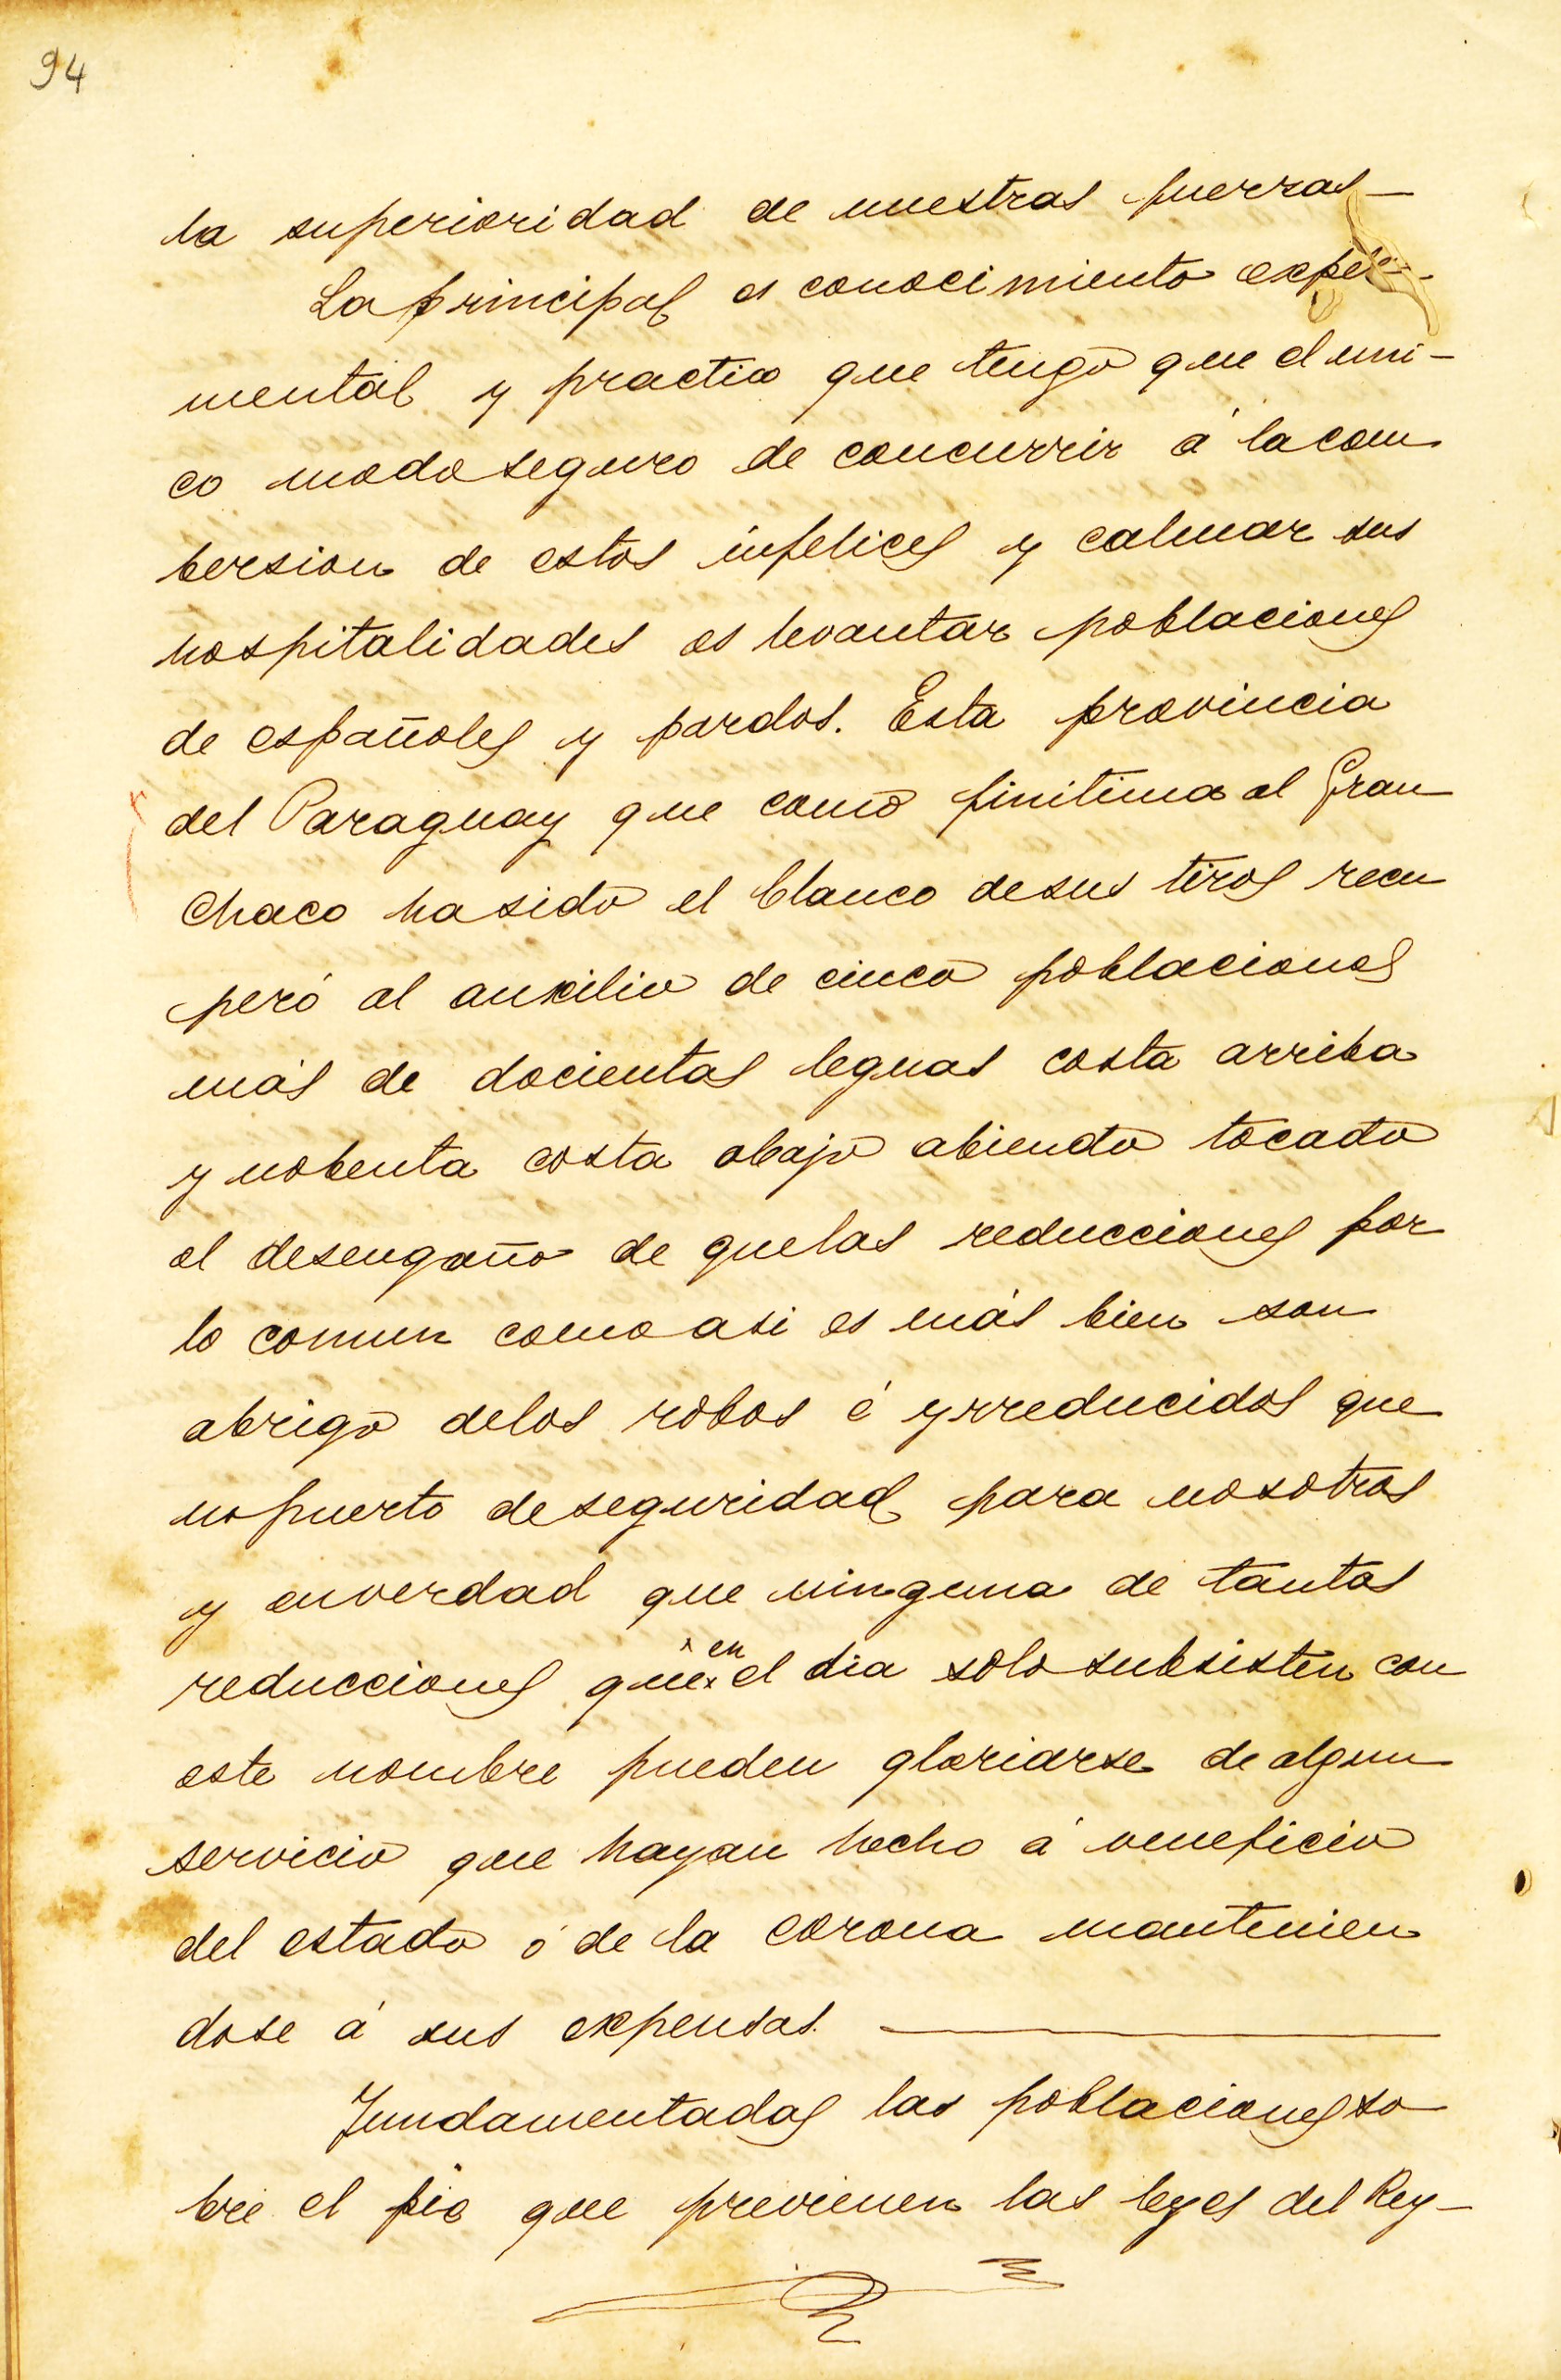 94
la superioridad de nuestras fuerzas—
La principal es conocimiento expe-
mental y practico que tengo que el uni-
co modo seguro de concurrir á la com
bersion de estos infelices y calmar sus
hospitalidades es levantar poblaciones
de españoles y pardos. Esta provincia
del Paraguay que como finitima al Gran
Chaco ha sido el blanco de sus tiros recu
peró al auxilio de cinco poblaciones
más de docientas leguas costa arriba
y nobenta costa abajo abiendo tocado
el desengaño de que las reducciones por
lo comun como asi es más bien son
abrigo de los robos é yrreducidos que
no puerto de seguridad para nosotros
y en verdad que ninguna de tantas
reducciones que en el dia solo subsisten con
este nombre pueden gloriarse de algun
servicio que hayan hecho á veneficio
del estado ó de la corona mantenien
dose á sus expensas.
Fundamentadas las poblaciones so
bre el pie que previenen las leyes del Rey—